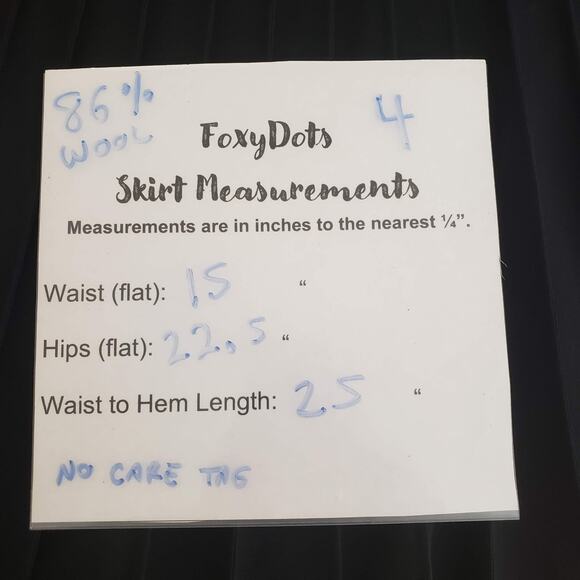 86%
WOOL
4
FoxyDots
Skirt Measurements
Measurements are in inches to the nearest ¼”.
Waist (flat): 15 “
Hips (flat): 22.5 “
Waist to Hem Length: 25 “
NO CARE TAG